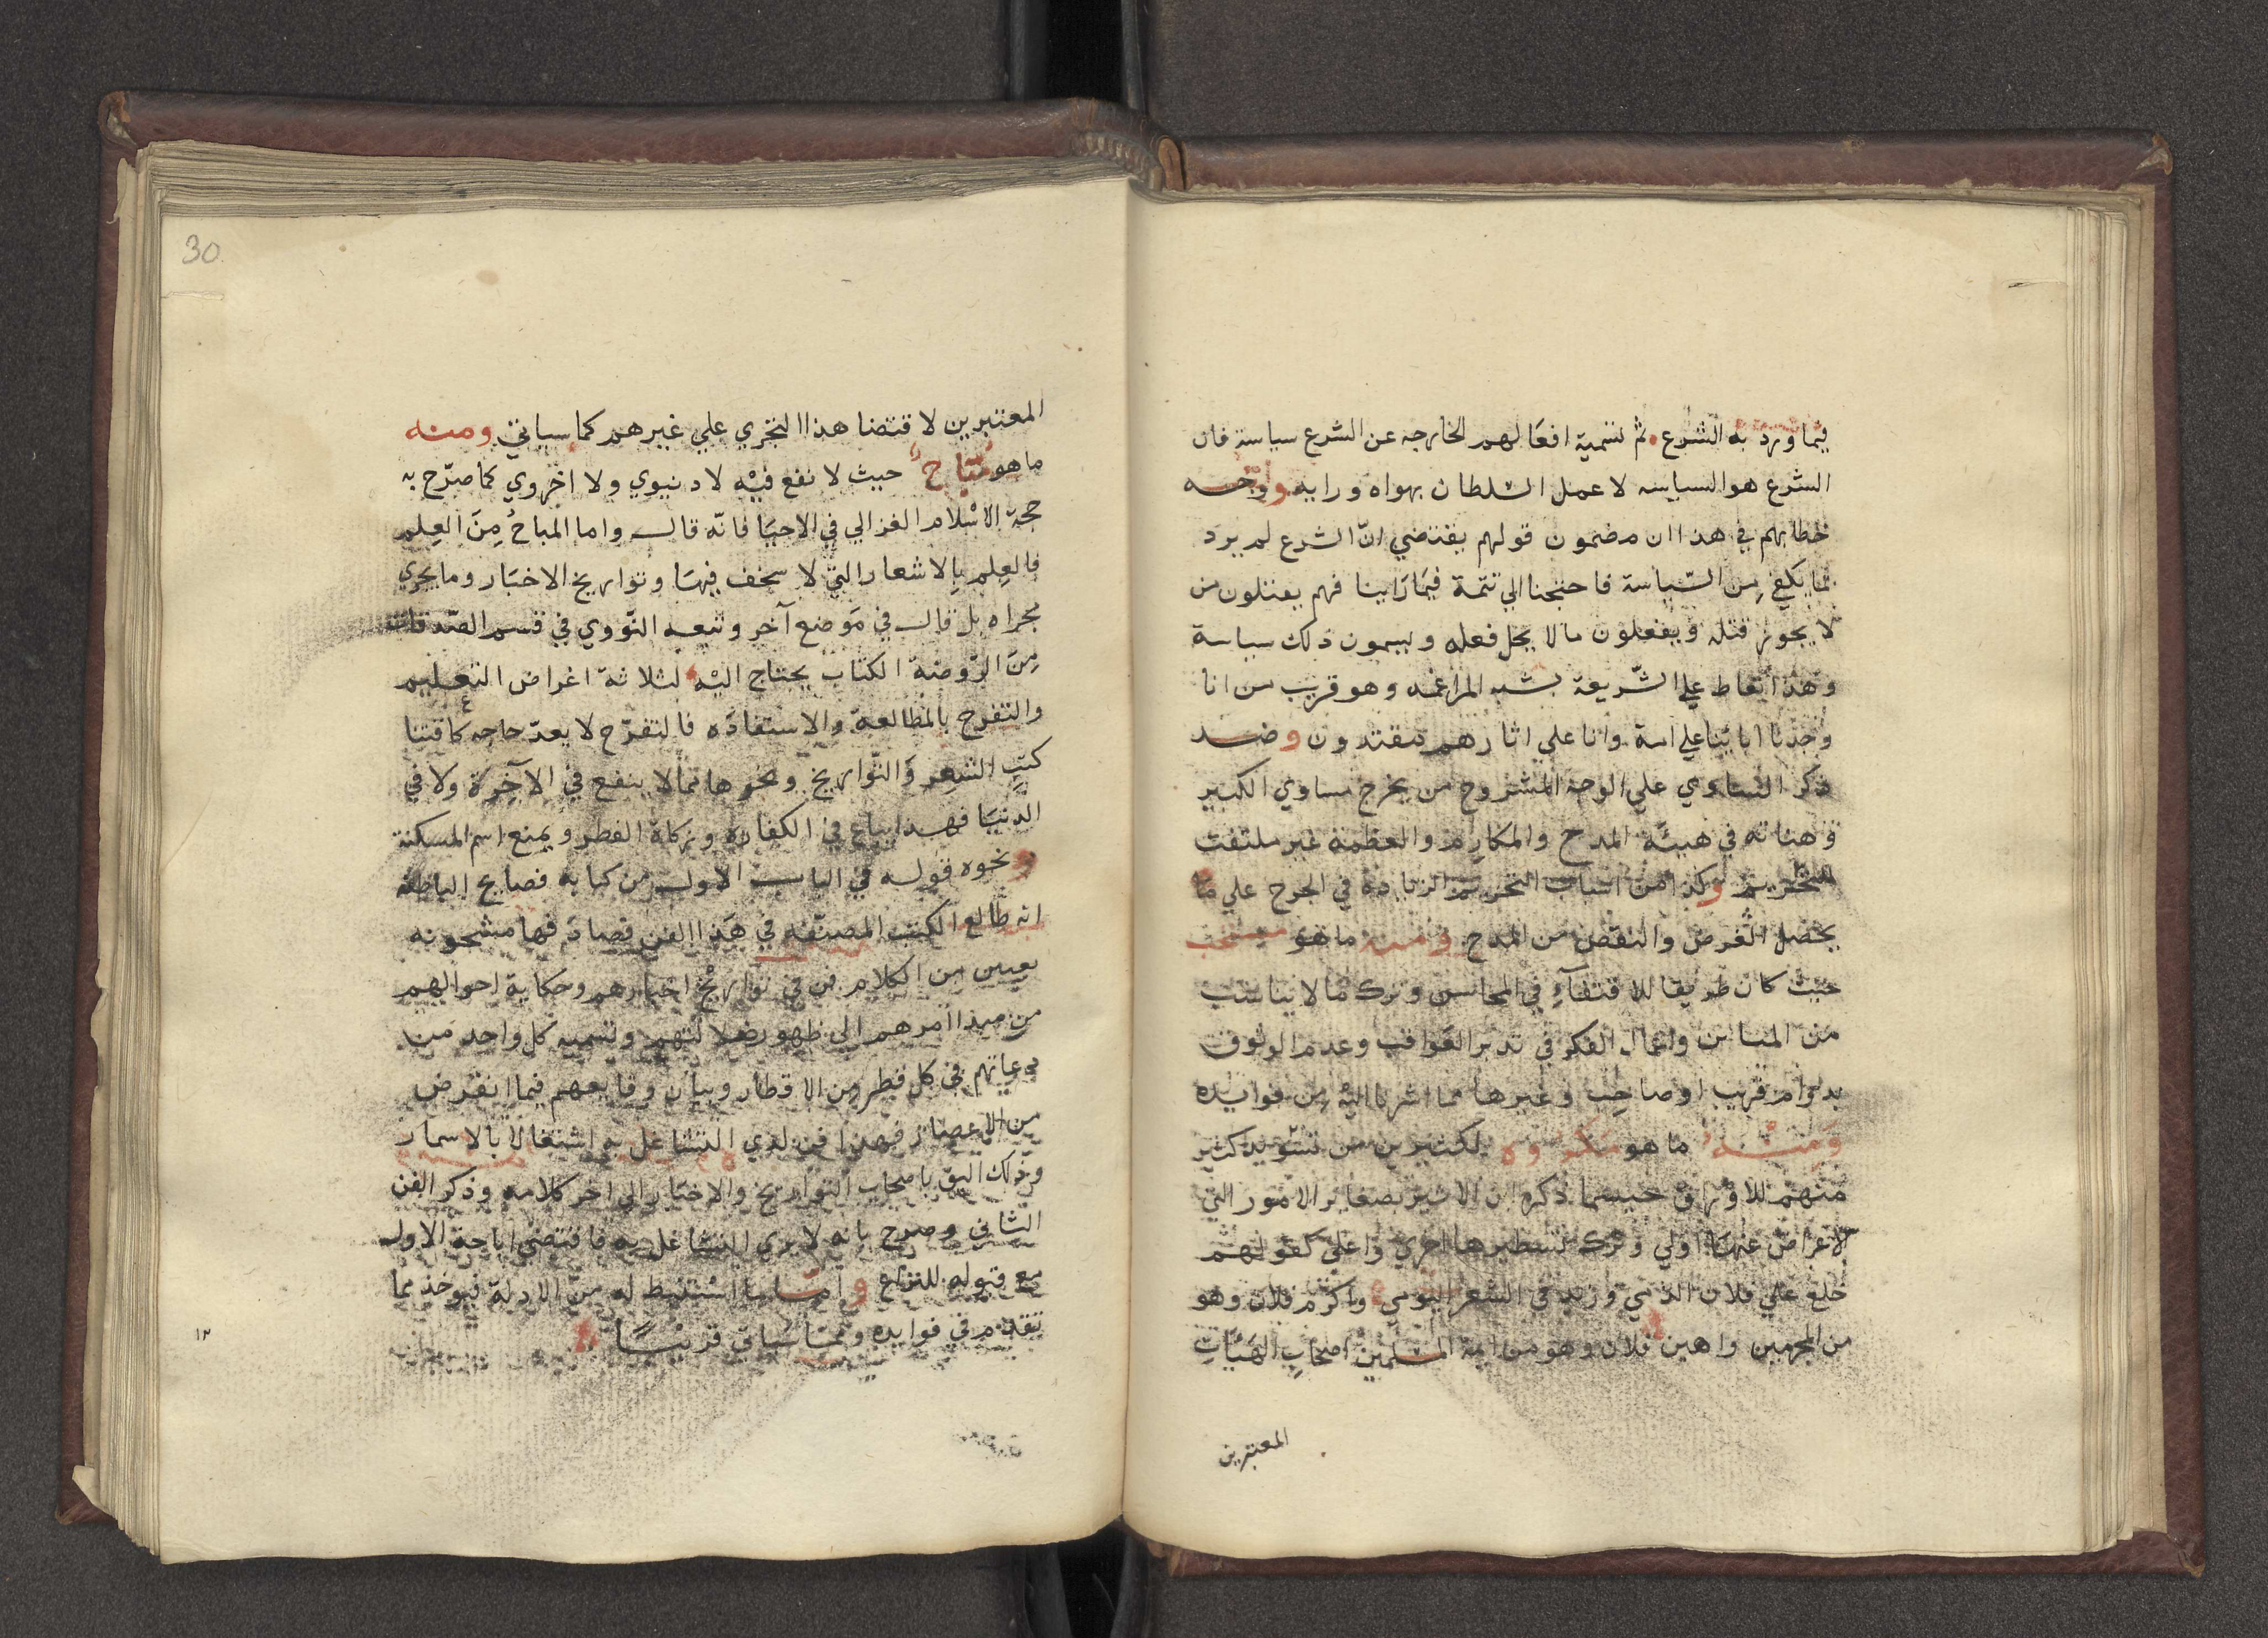 فيما ورد به الشرع ثم تسمية افعالهم الخارجه عن الشرع سياسة فان
الشرع هو السياسه لا عمل السلطان بهواه ورايه ووجه
خطابهم في هذا ان مضمون قولهم يقتضي انّ الشرع لم يرد
بما يكفي مِن السّياسة فاحتجنا الي تتمة فيما راينا فهم يقتلون من
لا يجوز قتله ويفعلون مالا يحل فعله ويسمون ذلك سياسة
وهذا تعاط علي الشّريعة يشبه المراغمه وهو قريب من انا
وجدنا اباءنا علي امة وانا علي اثارهم مقتدون وضد
ذكر المساوي علي الوجه المشروح من يخرج مساوي الكبير
وهناته في هيئة المدح والمكارم والعظمة غير ملتفت
للتحريم وكذا من اسباب التحريم الزيادة في الجرح علي ما
يحصل الغرض والنقص من المدح ومنه ما هو مستحب
حيث كان طريقا للاقتفآءِ في المحاسن وترك مالا يناسب
من المتاسي واعمال الفكر في تدبر العواقب وعدم الوثوق
بدوام قريب او صاحِب وغيرها مما اشرنا اليْه مِن فوايده
وَمِنْهُ ما هو مكروه لكثيرين من تسْويد كثير
منهم للاوراق حيسما ذكره ابن الاثير بصغاير الامور التي
الاعراض عنها اولي وترك تسطيرها احري واعلي كقولهم
خلع علي فلان الذمي وزيد في السّعر اليومي واكرم فلان وهو
من المجرمين واهين فلان وهو من ايمة المسْلمِيْن اصْحابِ الهَيْئاتِ
المعتبرين
30
المعتبرين لاقتضا هذا التجري علي غيرهم كما سياتي ومنه
ما هو مُبَاحٌ حيث لا نفع فيْه لا دنيوي ولا اخروي كما صرّح به
حجة الاسْلام الغزالي في الاحيَا فانّه قال واما المباحُ مِنَ العِلم
فالعِلم بِالاشعار التي لا سخف فيهَا وتواريخ الاخبَار وما يجري
مجراه بل قال في مَوضع آخر وتبعه النّووي في قسم الصّدقات
مِنَ الرّوضة الكتاب يحتاج اليْه لثلاثة اغراض التعليم
والتفرج بالمطالعة والاستفادَه فالتفرّج لا يعدّ حاجه كاقتنا
كتبِ الشعِر وَالتّواريخ ونحوها مما لا ينفع في الآخِرَة ولا في
الدّنيَا فهذا يباع في الكفارة وزكاة الفطر ويمنع اسم المسكنة
ونحوه قوله في الباب الاول من كتابه فضايح الباطنة
انه طالع الكتب المصنّفه في هَذا الفن فصادفها مشحونه
بفنين من الكلام فن في تواريْخ اخبارهم وحكاية احوالهم
من مبدا امرهم الي ظهور ضلالتهم وتسميه كل واحد من
دعاتهم في كل قطر مِن الاقطار وبيان وقايعهم فيما انقرض
من الاعصار فهذا فن لدي التشاغل به اشتغالا بالاسمار
وذلك اليق باصحاب التواريخ والاخبار الي اخر كلامه وذكر الفن
الثاني وصرح بانه لا يري التشاغل به فاقتضي اباحة الاول
مع قبوله للنزاع وامّا ما اسْتنبط له منَ الادلة فيوخذ مما
تقدّم في فوايده وممّا سْياتي قريبًا
١٢